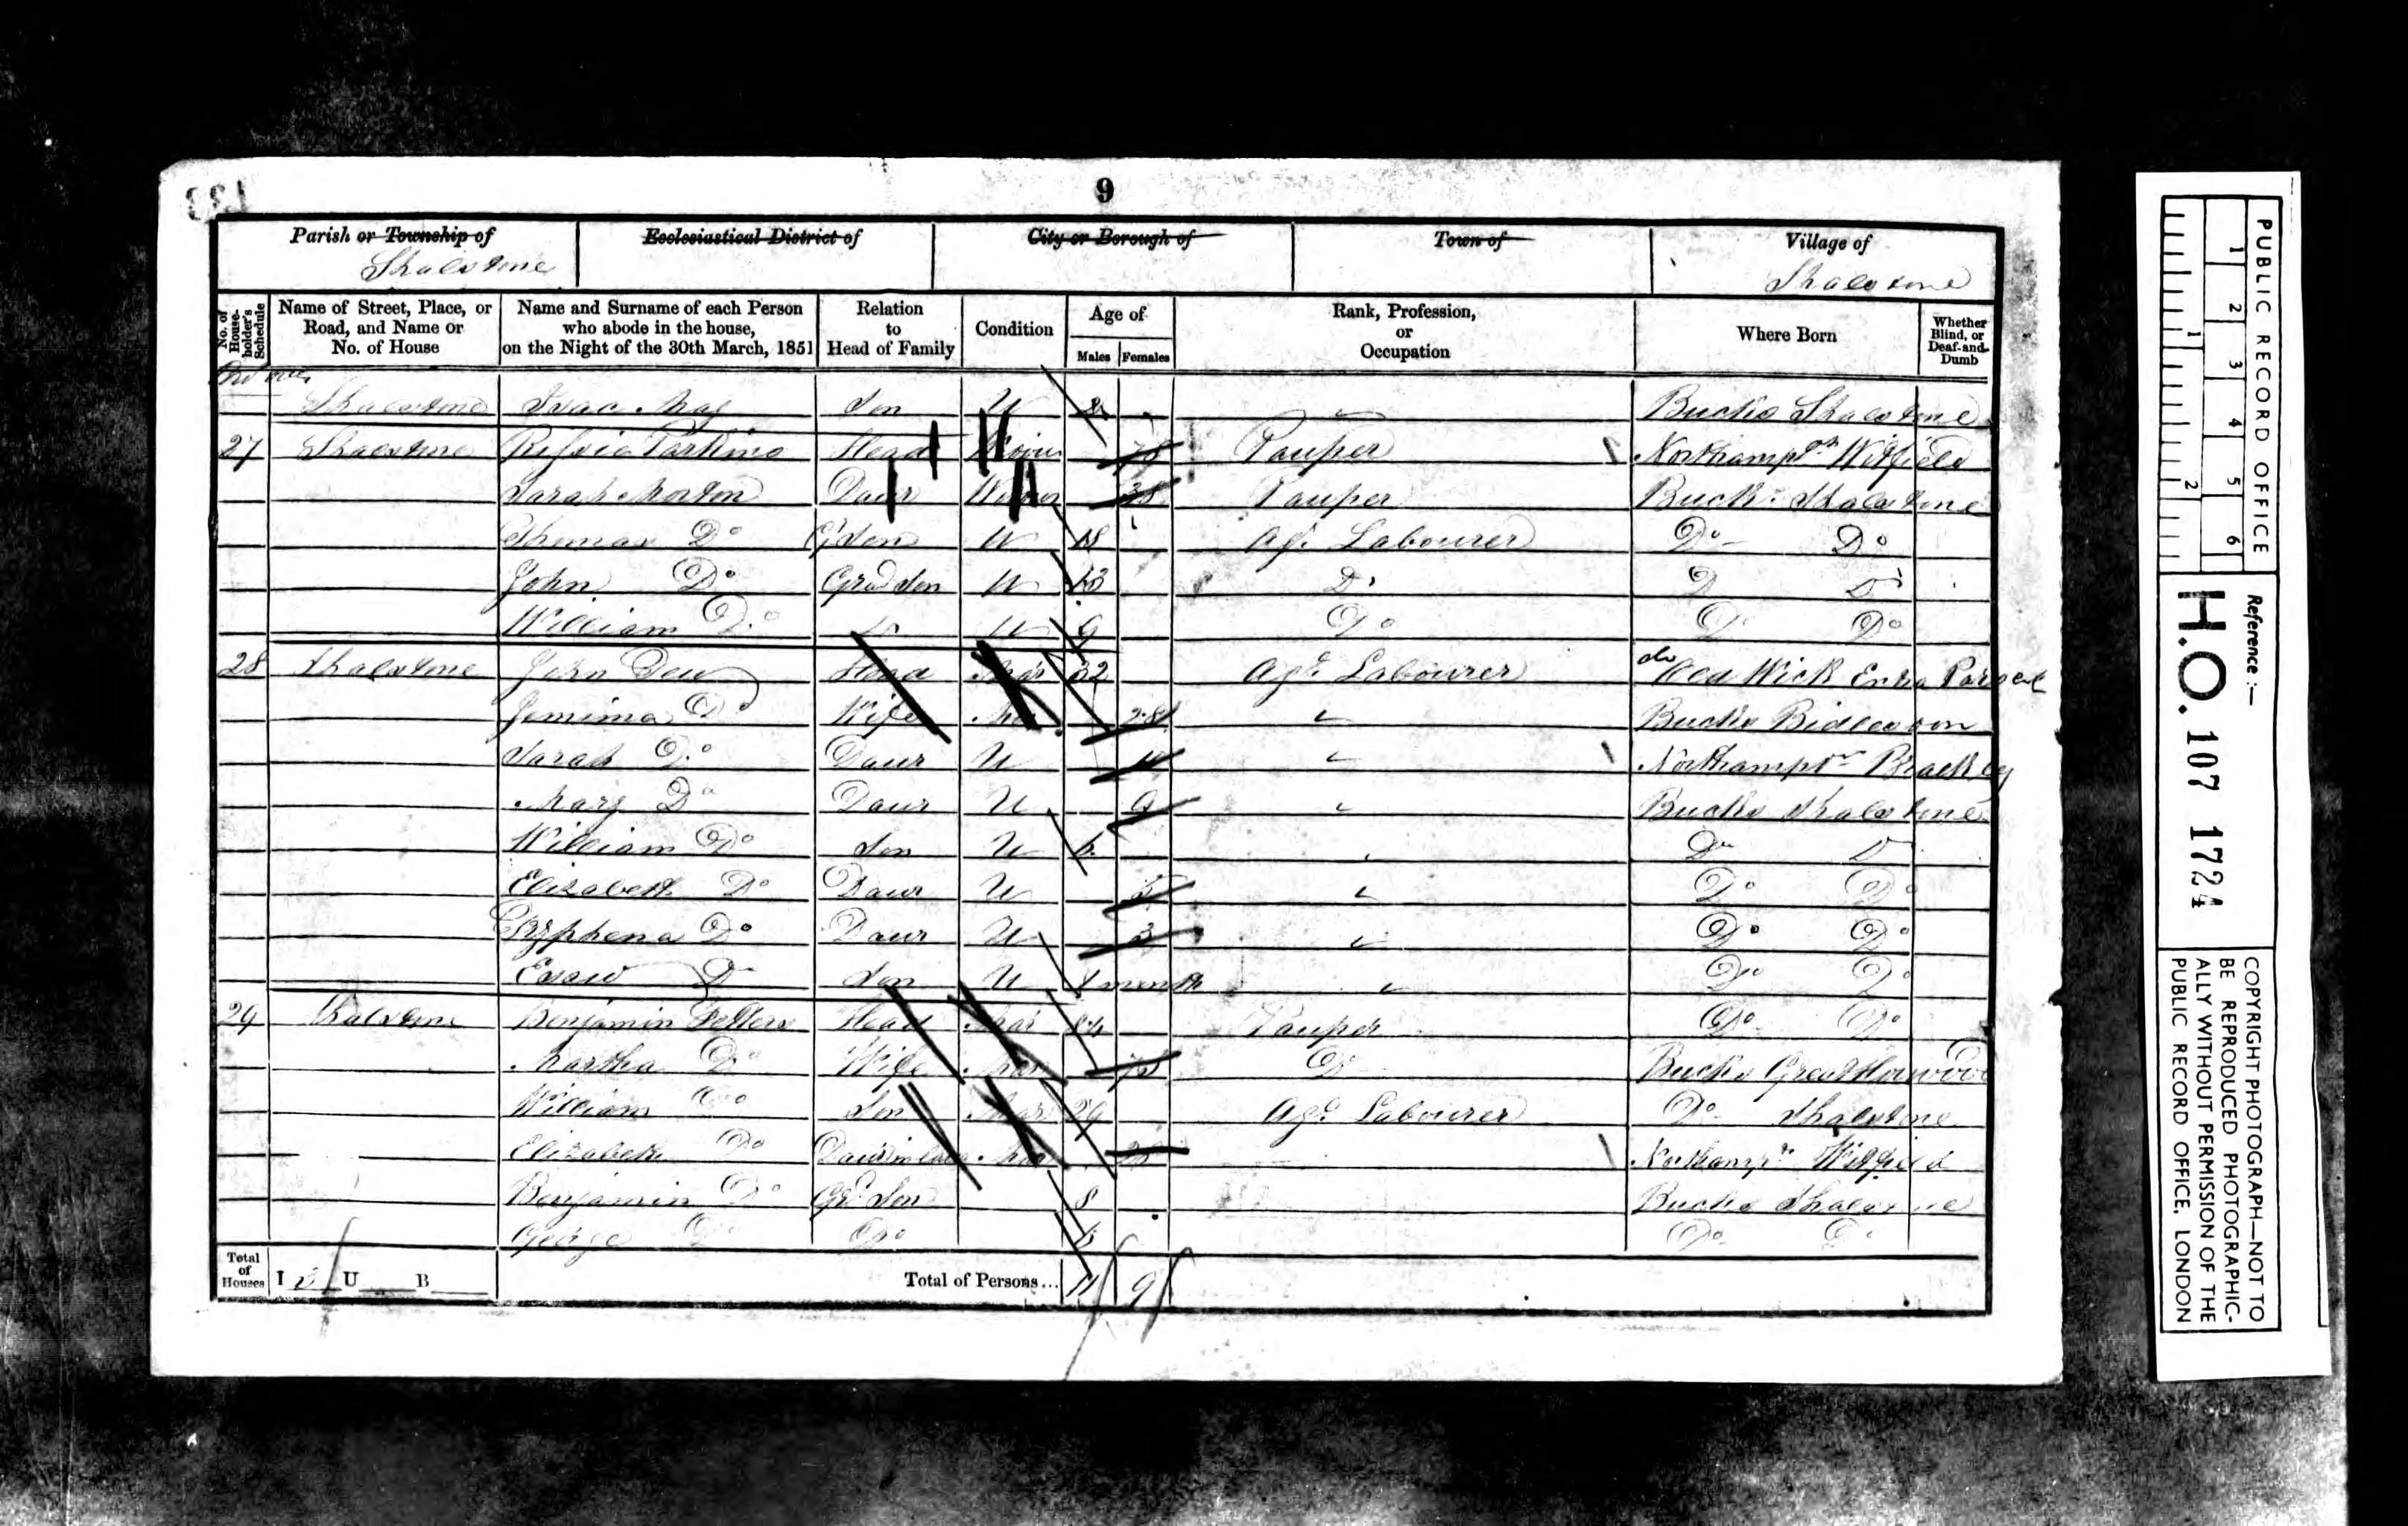 9
Parish or Township of Shalstone
Ecclesiastical District of
City or Borough of
Town of
Village of Shalstone
No. of House-holder's Schedule
Name of Street, Place, or Road, and Name or No. of House
Name and Surname of each Person who abode in the house, on the Night of the 30th March, 1851
Relation to Head of Family
Condition
Age of
Males Females
Rank, Profession, or Occupation
Where Born
Whether Blind, or Deaf-and-Dumb
Shalstone Isac May Son U Bucks Shalstone
27 Shalstone Head Pauper Northampton Witfield
Sarah Morton Daur Pauper Bucks Shalstone
Thomas Do G Son U 18 Ag. Labourer Do Do
John Do Grd Son U 13 Do D D
William Do Do U 9 Do Do Do
28 Shalstone John Dew Head Mar 32 Agl Labourer do Wick
Jemima Do Wife Mar 28 Bucks Bidleson
Sarah Do Daur U Northampton Brackley
Mary Do Daur U 9 Bucks Shalstone
William Do Son U Do D
Elizabeth Do Daur U 5 Do Do
Do Daur U 3 Do Do
Esaw Do Son U 1 month Do Do
29 Shalstone Benjamin Head Mar Pauper Do Do
Martha Do Wife Mar 75 Do Bucks Great Horwood
William Do Son Mar 29 Agl Labourer Do Shalstone
Elizabeth Do Daur in law Mar Northampn Witfield
Benjamin Do Gd Son 8 Bucks Shalstone
George Do Do Do Do
Total of Houses I 3 U B
Total of Persons... 11 9
PUBLIC RECORD OFFICE
1 2 3 4 5 6
1 2
Reference :—
H.O. 107 1724
COPYRIGHT PHOTOGRAPH—NOT TO
BE REPRODUCED PHOTOGRAPHIC-
ALLY WITHOUT PERMISSION OF THE
PUBLIC RECORD OFFICE, LONDON